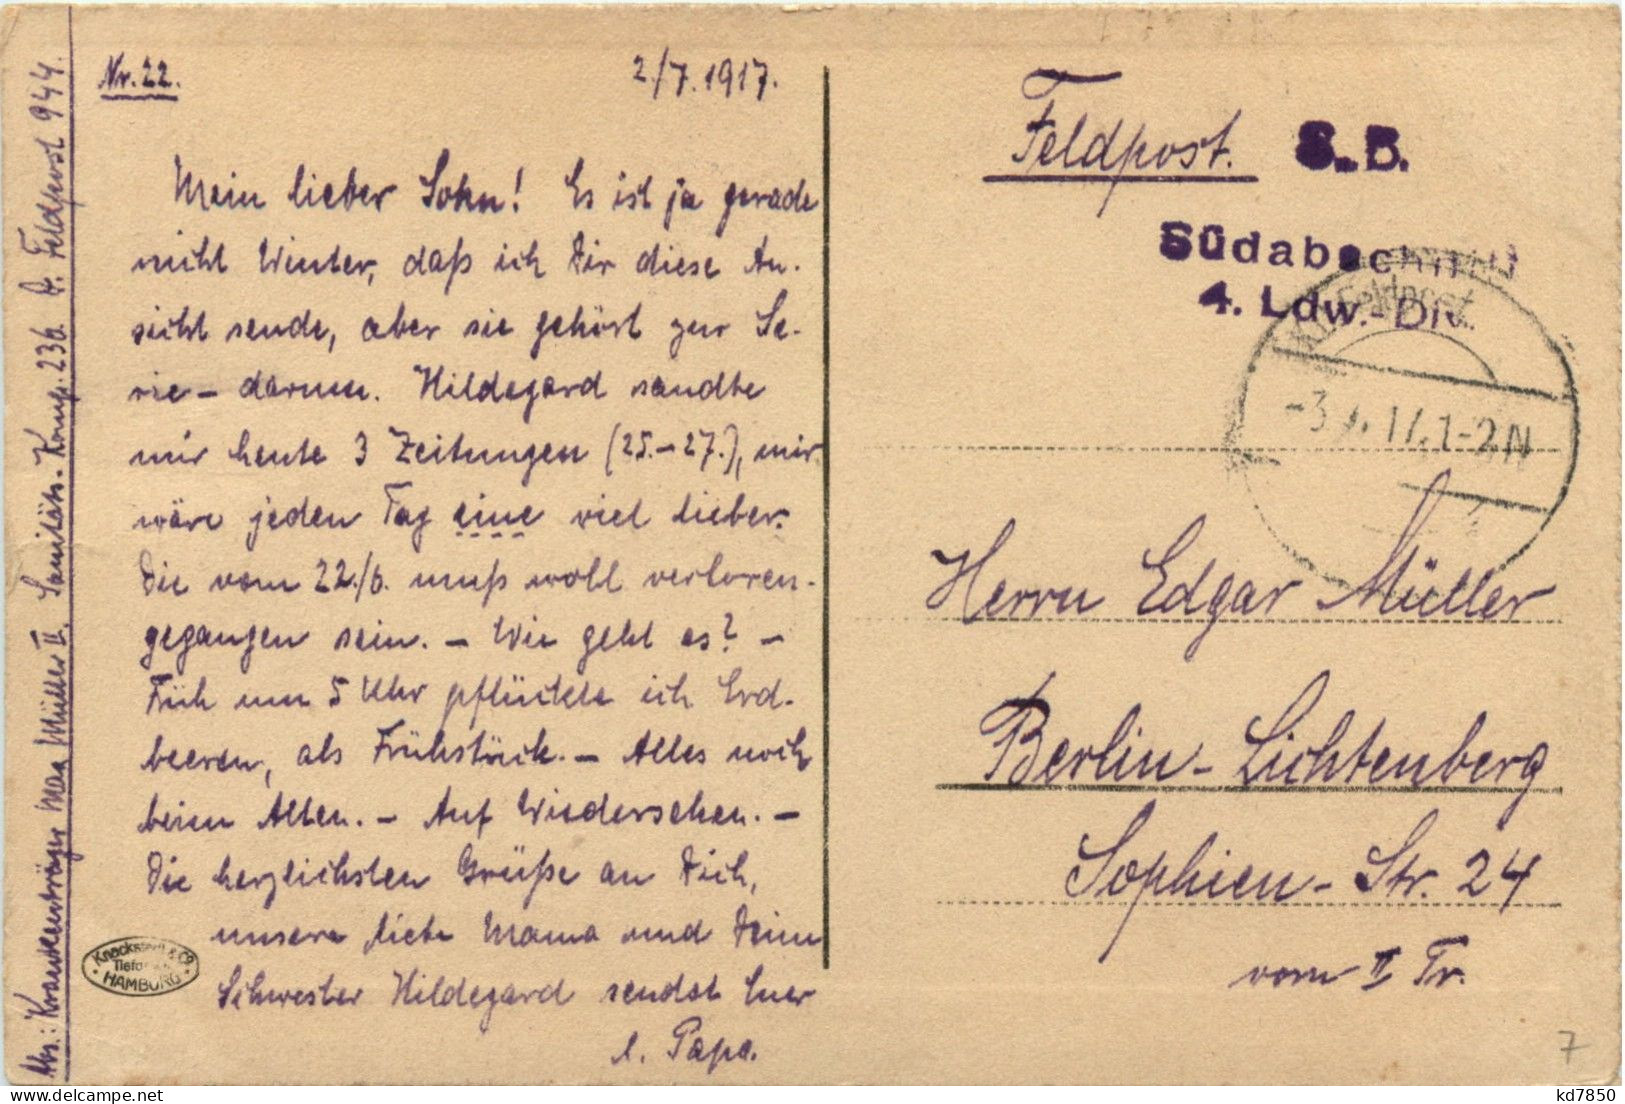 Nr. 22.
2./7. 1917.
Mein lieber Sohn! Es ist ja gerade
nicht Winter, daß ich Dir diese An-
sicht sende, aber sie gehört zur Se-
rie – darum. Hildegard sandte
mir heute 3 Zeitungen (25.–27.), mir
wäre jeden Tag eine viel lieber.
Die vom 22./6. muß wohl verloren-
gegangen sein. – Wie geht es? –
Früh um 5 Uhr pflückte ich Erd-
beeren, als Frühstück. – Alles noch
beim Alten. – Auf Wiedersehen. –
Die herzlichsten Grüße an Dich,
unsere liebe Mama und Deine
Schwester Hildegard sendet Euer
l. Papa.
Abs.: Krankenträger Max Müller II. Sanitäts-Komp. 236. D. Feldpost 944.
Knackstedt & Co.
HAMBURG
Feldpost.
S. B.
Südabschnitt
4. Ldw.-Div.
Feldpost
-3 7. 17. 1-2 N
Herrn Edgar Müller
Berlin-Lichtenberg
Sophien-Str. 24
vorn II Tr.
7
kd7850